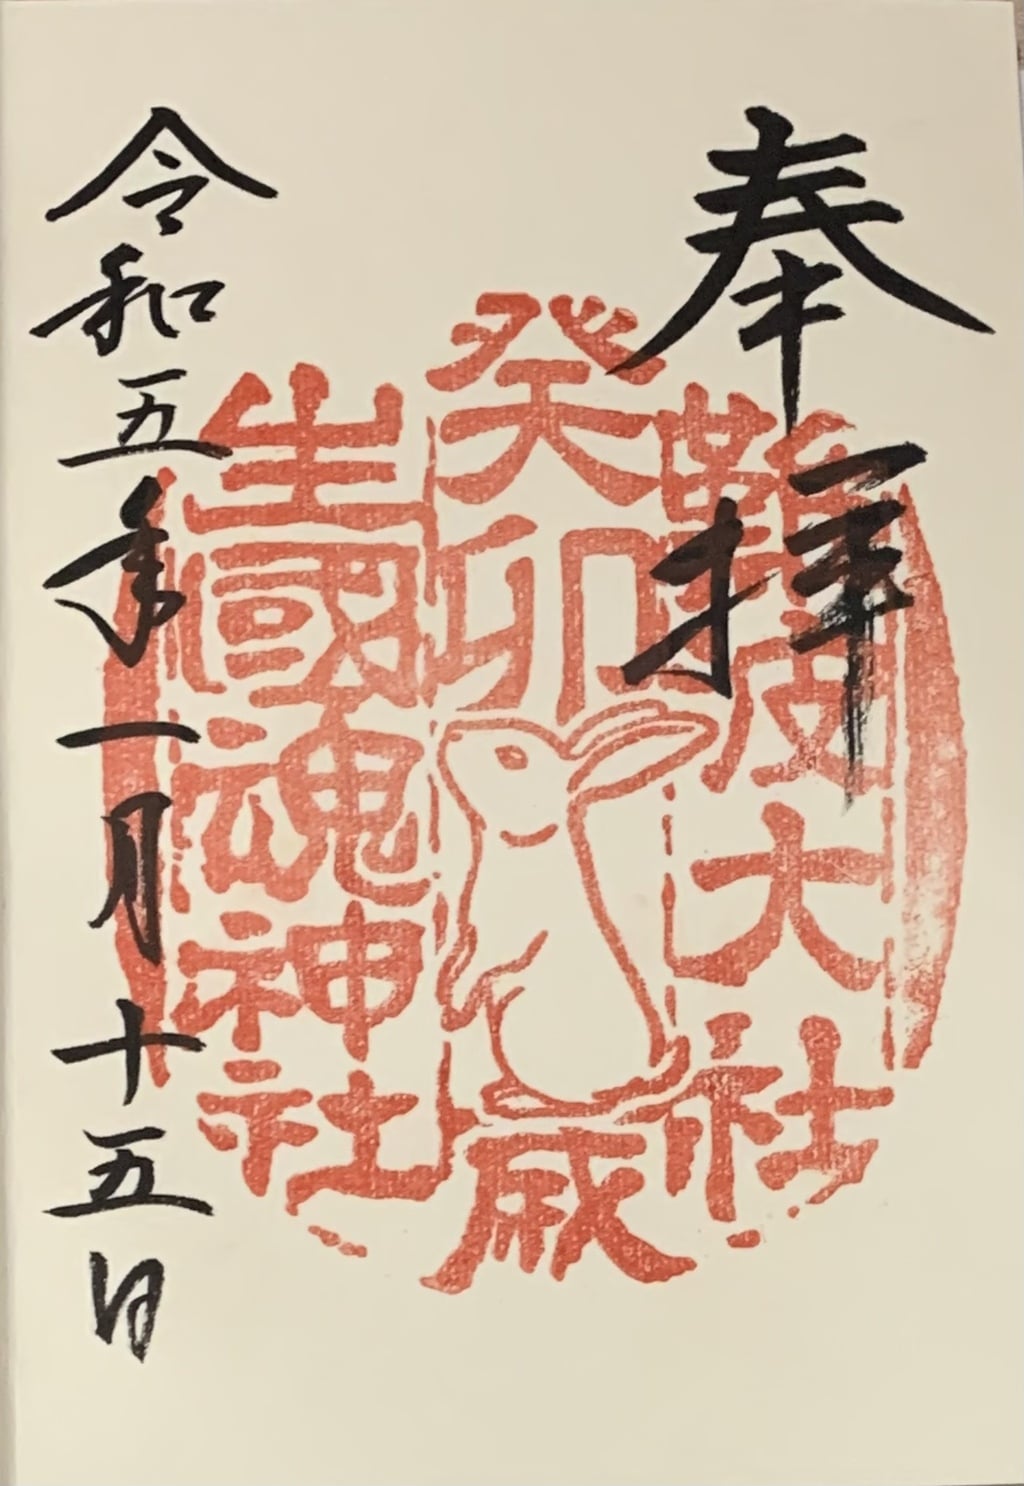 奉拝
難波大社
癸卯
歳
生國魂神社
令和五年一月十五日